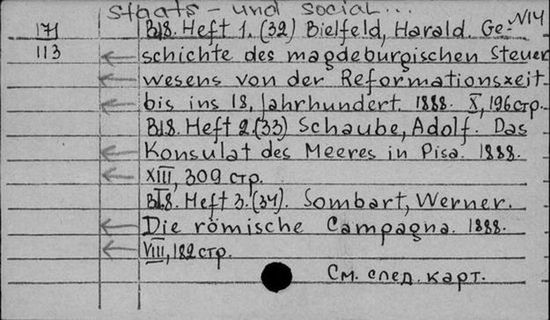 Staats- und social...
171 Bd.8. Heft 1. (32) Bielfeld, Harald. Ge- N14
113 schichte des magdeburgischen Steuer
wesens von der Reformationszeit
bis ins 18. Jahrhundert. 1888. X, 196 стр.
Bd.8. Heft 2. (33) Schaube, Adolf. Das
Konsulat des Meeres in Pisa. 1888.
XIII, 309 стр.
Bd.8. Heft 3. (34). Sombart, Werner.
Die römische Campagna. 1888.
VIII, 182 стр.
См. след. карт.